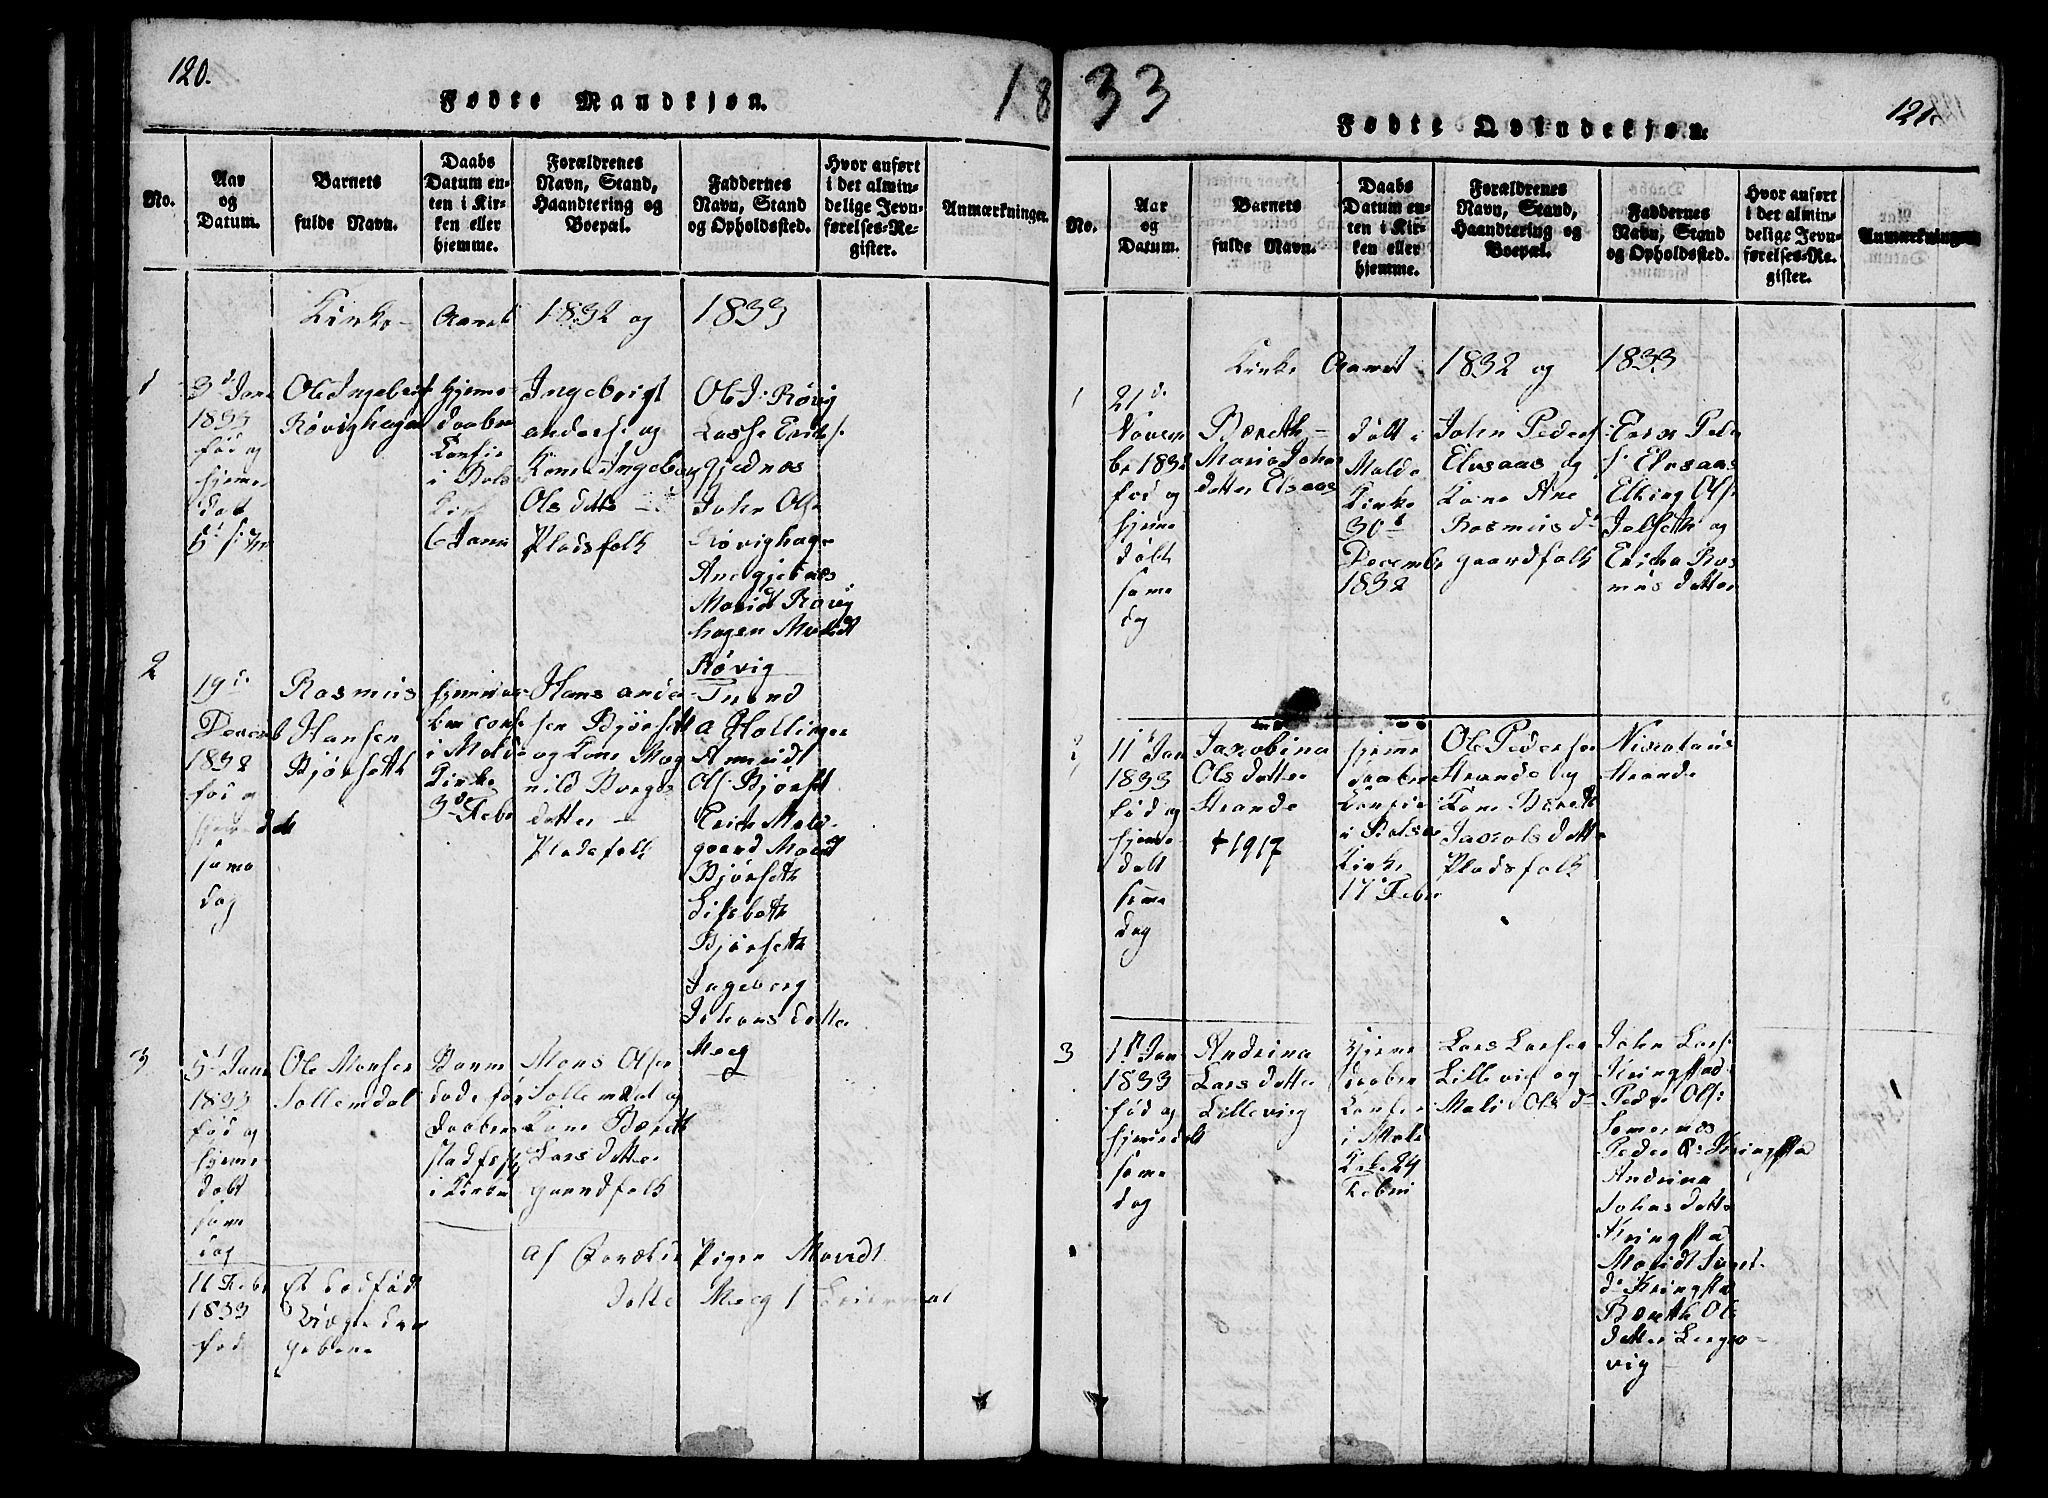 120.
Fødte Mandkjøn.
18
No.
Aar
og
Datum.
Barnets
fulde Navn.
Daabs
Datum en-
ten i Kir-
ken eller
hjemme.
Forældrenes
Navn, Stand,
Haandtering og
Boepæl.
Faddernes
Navn, Stand
og Opholdssted.
Hvor anført
i det almin-
delige Jevn-
førelses-Re-
gister.
Anmærkninger.
Kirke- Aaret 1832 og 1833
1
3d Janu
1833
fød og
hjeme
døbt
Ole Ingebrigts
Røvighagen
hjeme
daaben
Confir
i Bols
Kirk
6 Janu
Ingebrigt
anderse og
Kone Ingeborg
Ols datter
Pladsfolk
Ole J: Røvig
Lasse Erichs
Gjednæs
John Olse
Røvighage
Ane gjednæs
Marit Røvig
hagen Marit
Røvig
2
19de
Decemb
1832
fød og
hjemedøbt
same
dag
Rasmus
Hansen
Bjørseth
hjemmedaa
ben conf
i Molde
Kirke
3de Febr
Hans ander
sen Bjørseth
og Kone Mag
nild Borgs
datter
Pladsfolk
Trond
a Hollinge
Amund
Ols Bjørset
Erich Mold
gaard Marit
Bjørseth
Lisbeth
Bjørseth
Ingeborg
Johans datter
Moeg
3
5d Janu
1833
fød og
hjeme
døbt
same
dag
Ole Monsen
Sollemdal
Barn
døde før
Daaben
stadfest
i Kirken
Mons Olsen
Sollemdal og
Kone Bereth
Lars datter
gaardfolk
11 Febr
1833
fød
Et dødfød
Drægte dren
gebarn
Af Pigen Marit
datter Moeg
33
121.
Fødte Qvindekjøn.
No.
Aar
og
Datum.
Barnets
fulde Navn.
Daabs
Datum en-
ten i Kir-
ken eller
hjemme.
Forældrenes
Navn, Stand,
Haandtering og
Boepæl.
Faddernes
Navn, Stand
og Opholdssted.
Hvor anført
i det almin-
delige Jevn-
førelses-Re-
gister.
Anmærkninger.
Kirke Aaret 1832 og 1833
1
21d
Novem
br 1832
fød og
hjeme
døbt
same
dag
Bereth
Maria Johns
datter Elsaas
døbt i
Molde
Kirke
30d
Decembr
1832
John Peders
Elvsaas og
Kone Ane
Rasmus dr
gaardfolk
Erix Peder
s: Elvsaas
Elling Ols
Jelseth og
Ericha Ras
mus datter
2
11t Jan
1833
fød og
hjeme
døbt
same
dag
Jacobina
Ols datter
Strande
† 1917
hjeme
daaben
Confir
i Bolsø
Kirke
17d Febr
Ole Pedersen
Strande og
Kone Bereth
Jacobs datter
Pladsfolk
Nicolaus
Strande
3
1st Jan
1833
fød og
hjemedøbt
same
dag
Andrina
Lars datter
Lillevig
Hjeme
daaben
Confir
i Molde
Kirke 24
Febru
Lars Larsen
Lillevig og
Mali Ols dr
John Lars
Kringstad
Peder Ols:
Somernes
Peder O: Kringsta
Andrina
Johns datter
Kringsta
Marit
dr Kringsta
Bereth Ols
datter Lergro-
vig